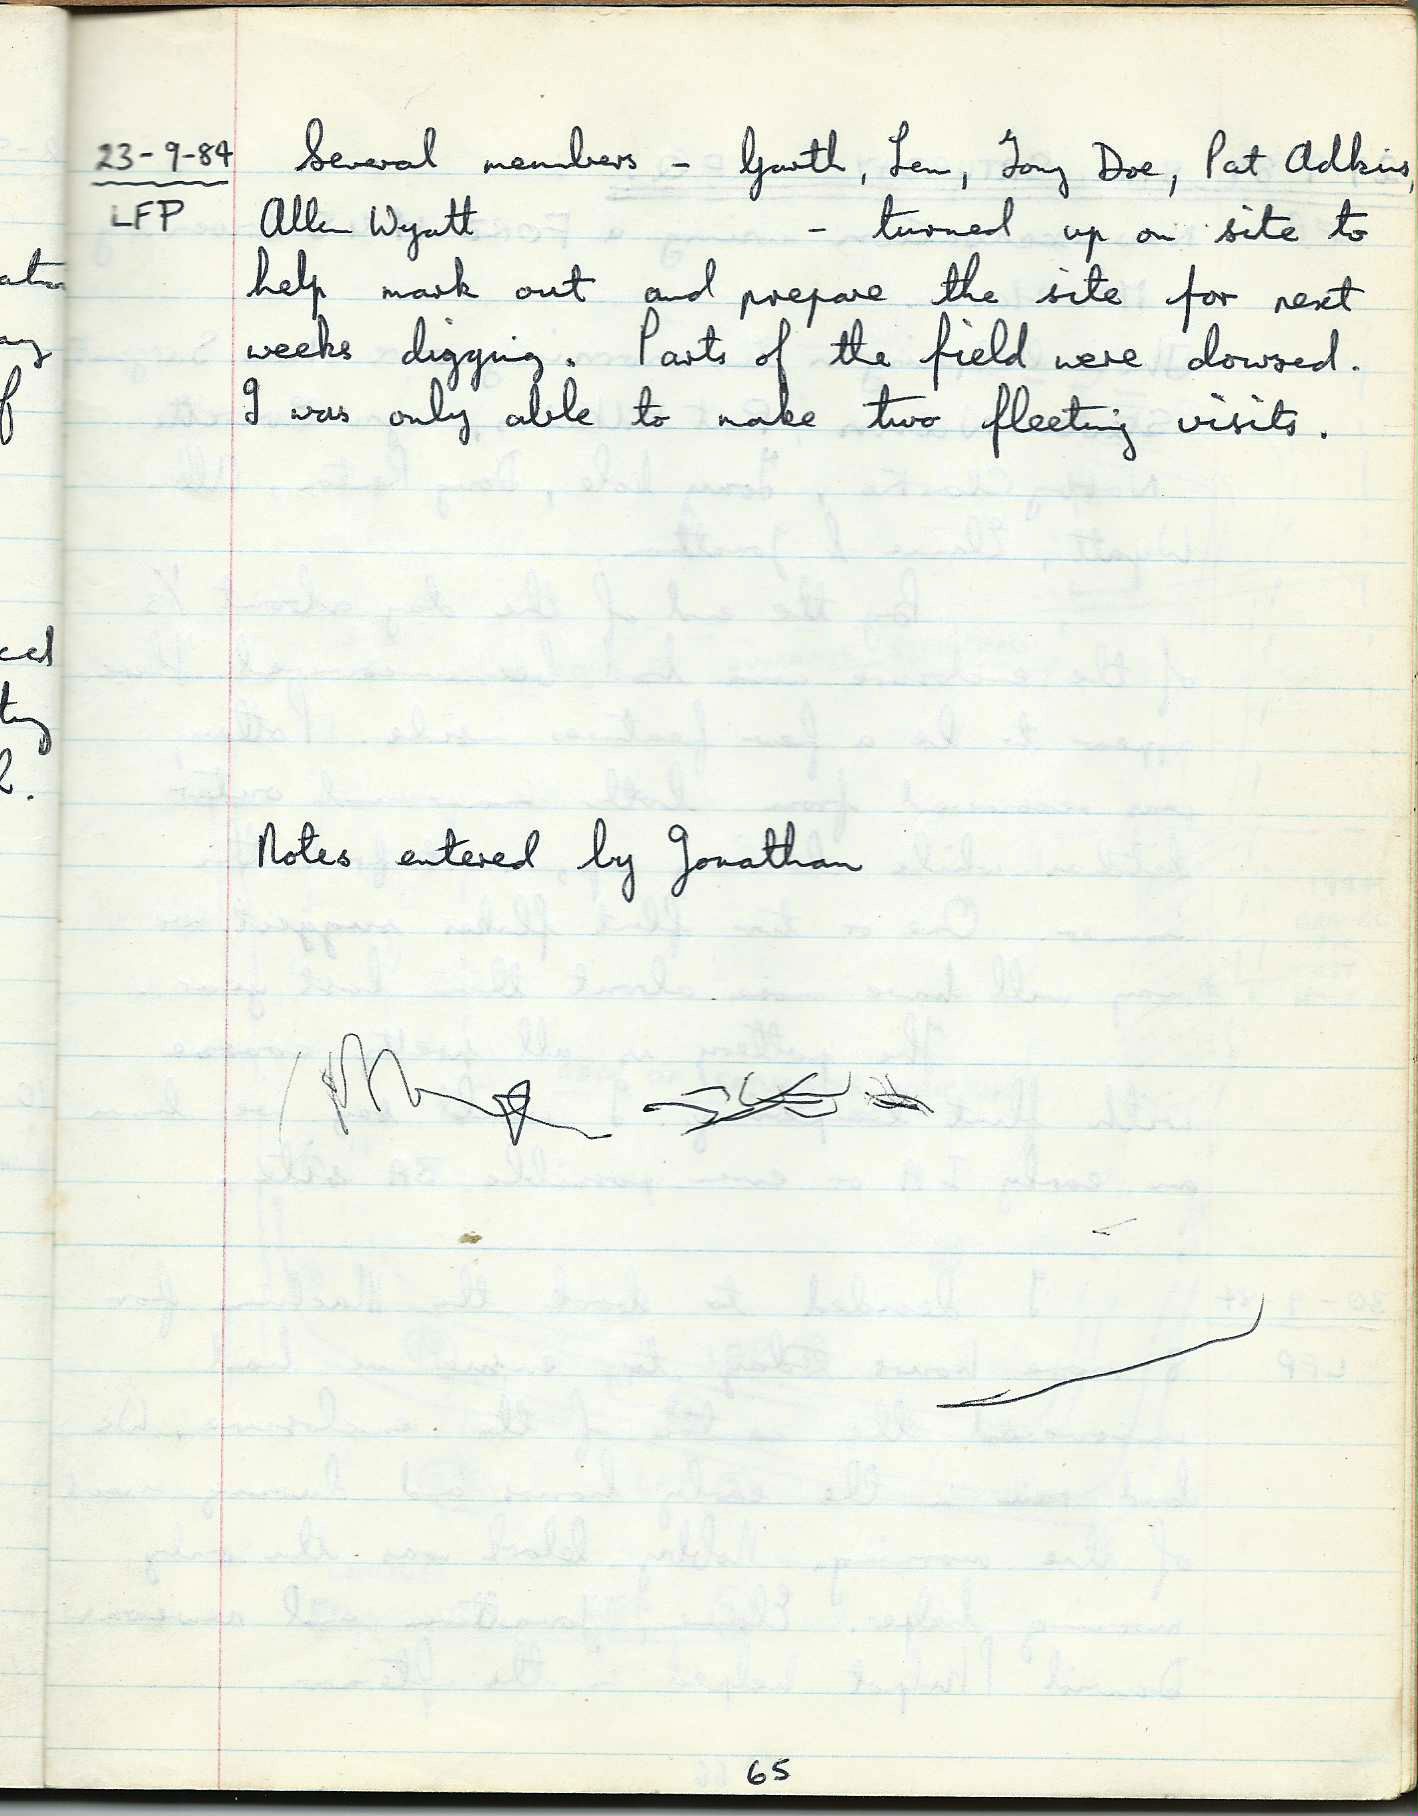 23-9-84 Several members - Garth, Len, Tony Doe, Pat Adkins,
LFP Allen Wyatt - turned up on site to
help mark out and prepare the site for next
weeks digging. Parts of the field were dowsed.
I was only able to make two fleeting visits.
Notes entered by Jonathan
65